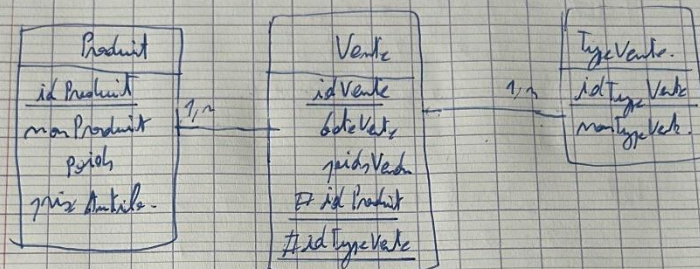 Produit
idProduit
nomProduit
Poids
prix
1,n
Vente
idVente
dateVente
poidsVendu
# idProduit
#idTypeVente
1,n
TypeVente.
idTypeVente
nomTypeVente.